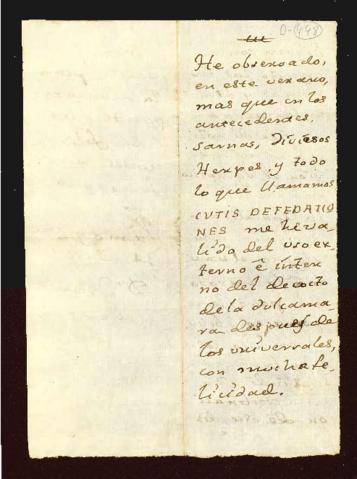 D-448
He observado,
en este verano,
mas que en los
antecedentes,
sarnas, Diviesos
Herpes y todo
lo que llamamos
CUTIS DEFEDATIO
NES me hè va
lido del uso ex
terno è inter
no del decocto
de la dulcama
ra despues de
los universales,
con mucha fe
licidad.